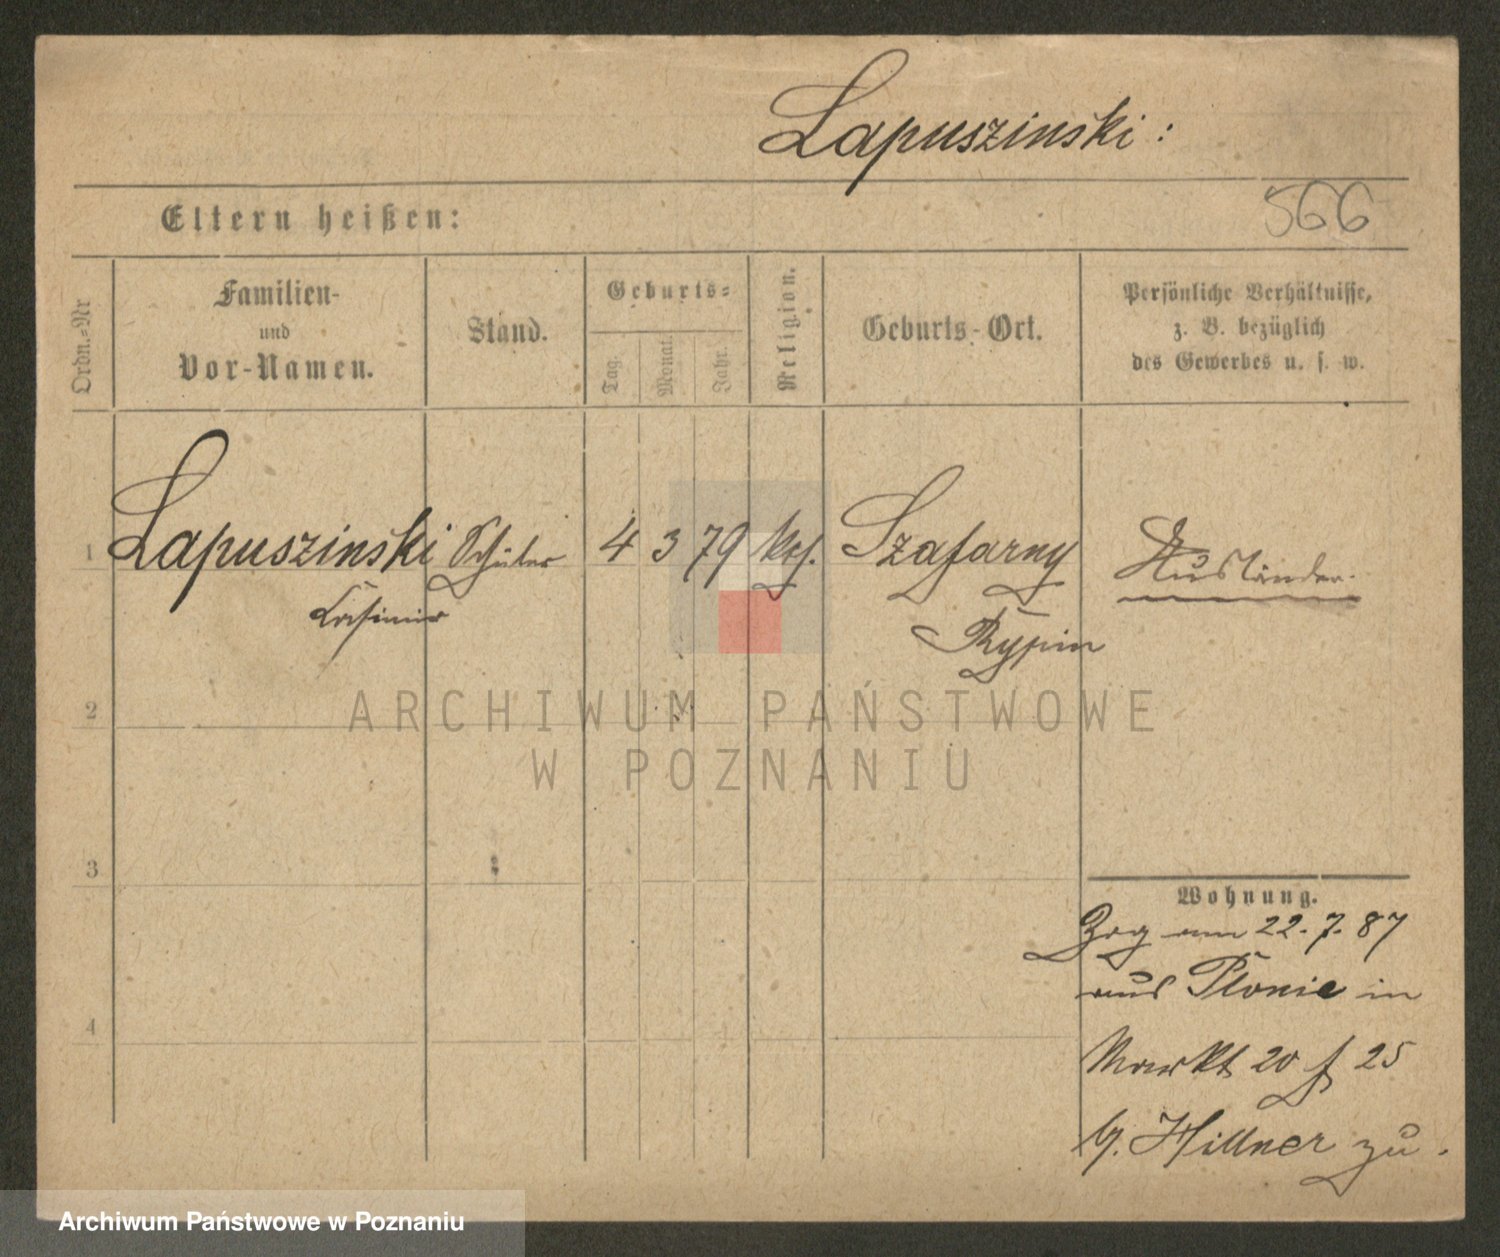 Lapuszinski:
Eltern heißen:
566
Ordn.-Nr
Familien-
und
Vor-Namen.
Stand.
Geburts-
Tag.
Monat.
Jahr.
Religion.
Geburts-Ort.
Persönliche Verhältnisse,
z. B. bezüglich
des Gewerbes u. s. w.
1 Lapuszinski Schüler 4 3 79 kth. Szafarny Ausländer.
Casimir Rypin
2
ARCHIWUM PAŃSTWOWE
W POZNANIU
3
Wohnung.
Zzg am 22.7.87
aus Plonie in
4
Markt 20 f 25
b/. Hillner zu.
Archiwum Państwowe w Poznaniu